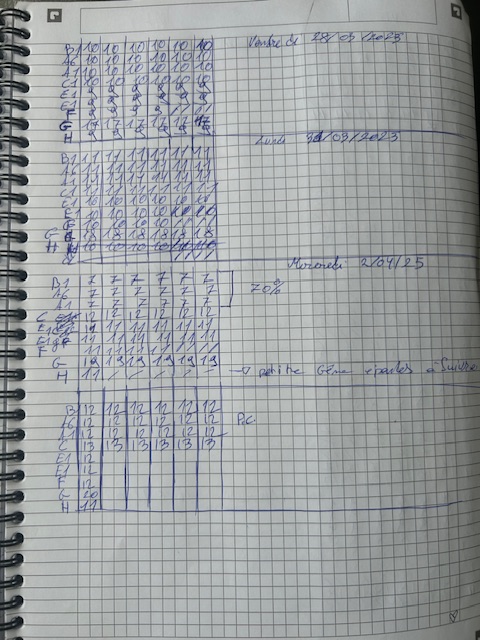 Vendredi 28/03/2025
B1 10 10 10 10 10 10
A6 10 10 10 10 10 10
A1 10 10 10 10 10 10
C1 10 10 10 10 10 10
9 9 9 9 9 9
E1 9 9 9 9 9 9
F 9 9 9 9
G 17 17 17 17 17 17
H 9 9 9 9 9
Lundi 31/03/2023
B1 11 11 11 11 11 11
A6 11 11 11 11 11 11
A1 11 11 11 11 11 11
C1 11 11 11 11 11 11
E1 10 10 10 10
E1 10 10 10 10 10 10
10 10 10 10
G 18 18 18 18 18 18
H 10 10 10 10
Mercredi 2/04/25
B1 7 7 7 7 7 7
A6 7 7 7 7 7 7 70%
A1 7 7 7 7 7 7
C 12 12 12 12 12 12
11 11 11 11 11
11 11 11 11 11 11
F 11 11 11 11
G 19 19 19 19 19 19
H 11 / / / / / → 6ème à Suivre
B 12 12 12 12 12 12
A6 12 12 12 12 12 12 P.C
A1 12 12 12 12 12 12
C 13 13 13 13 13 13
E1 12
E1 12
F 12
G 20
H 11